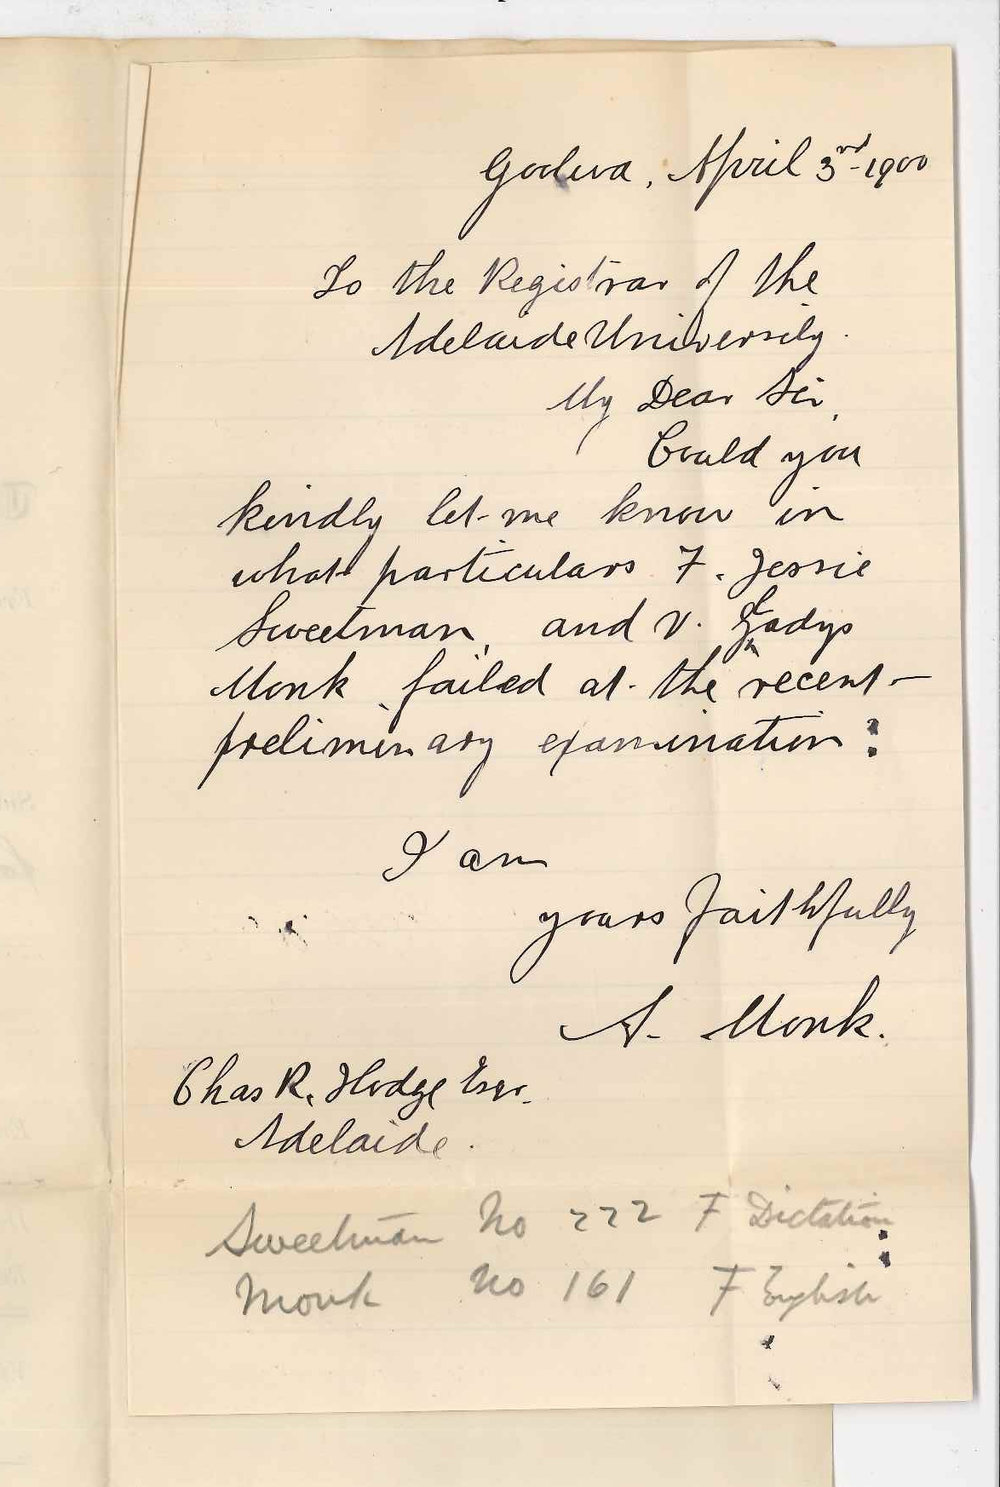 Godiva, April 3rd - 1900
To the Registrar of the
Adelaide University.
My Dear Sir,
Could you
kindly let me know in
what particulars F. Jessie
Sweetman, and V. Gladys
Monk failed at the recent
preliminary examination:
I am
yours faithfully
A. Monk.
Chas R. Hodge Esqr.
Adelaide.
Sweetman No 222 F Dictation
Monk No 161 F English